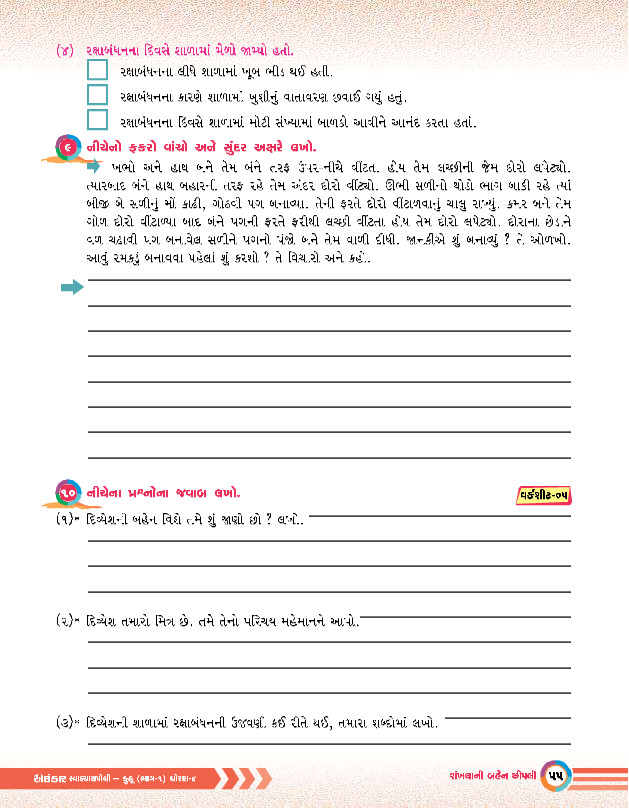 (૪) રક્ષાબંધનના દિવસે શાળામાં મેળો જામ્યો હતો.
રક્ષાબંધનના લીધે શાળામાં ખૂબ ભીડ થઈ હતી.
રક્ષાબંધનના કારણે શાળામાં ખુશીનું વાતાવરણ છવાઈ ગયું હતું.
રક્ષાબંધનના દિવસે શાળામાં મોટી સંખ્યામાં બાળકો આવીને આનંદ કરતા હતાં.
૯ નીચેનો ફકરો વાંચો અને સુંદર અક્ષરે લખો.
ખભો અને હાથ બને તેમ બંને તરફ ઉપર-નીચે વીંટત. હોય તેમ લચ્છીની જેમ દોરો લપેટ્યો.
ત્યારબાદ બંને હાથ બહારની તરફ રહે તેમ અંદર દોરો વીંટ્યો. ઊભી સળીનો થોડો ભાગ બાકી રહે ત્યાં
બીજી બે સળીનું મોં કાઢી, ગોઠવી પગ બનાવ્યા. તેની ફરતે દોરો વીંટાળવાનું ચાલુ રાખ્યું. કમર બને તેમ
ગોળ દોરો વીંટાળ્યા બાદ બંને પગની ફરતે ફરીથી લચ્છી વીંટતા હોય તેમ દોરો લપેટ્યો. દોરાના છેડાને
વળ ચઢાવી પગ બનાવેલ સળીને પગનો પંજો બને તેમ વાળી દીધી. જાનકીએ શું બનાવ્યું ? તે ઓળખો.
આવું રમકડું બનાવવા પહેલાં શું કરશો ? તે વિચારો અને કહો.
૧૦ નીચેના પ્રશ્નોના જવાબ લખો.
વર્કશીટ-૦૫
(૧)* દિવ્યેશની બહેન વિશે તમે શું જાણો છો ? લખો.
(૨)* દિવ્યેશ તમારો મિત્ર છે. તમે તેનો પરિચય મહેમાનને આપો.
(૩)* દિવ્યેશની શાળામાં રક્ષાબંધનની ઉજવણી કઈ રીતે થઈ, તમારા શબ્દોમાં લખો.
અલંકાર સ્વાધ્યાયપોથી – કુહૂ (ભાગ-૧) ધોરણ-૪
શંખલાની બહેન છીપલી ૫૫